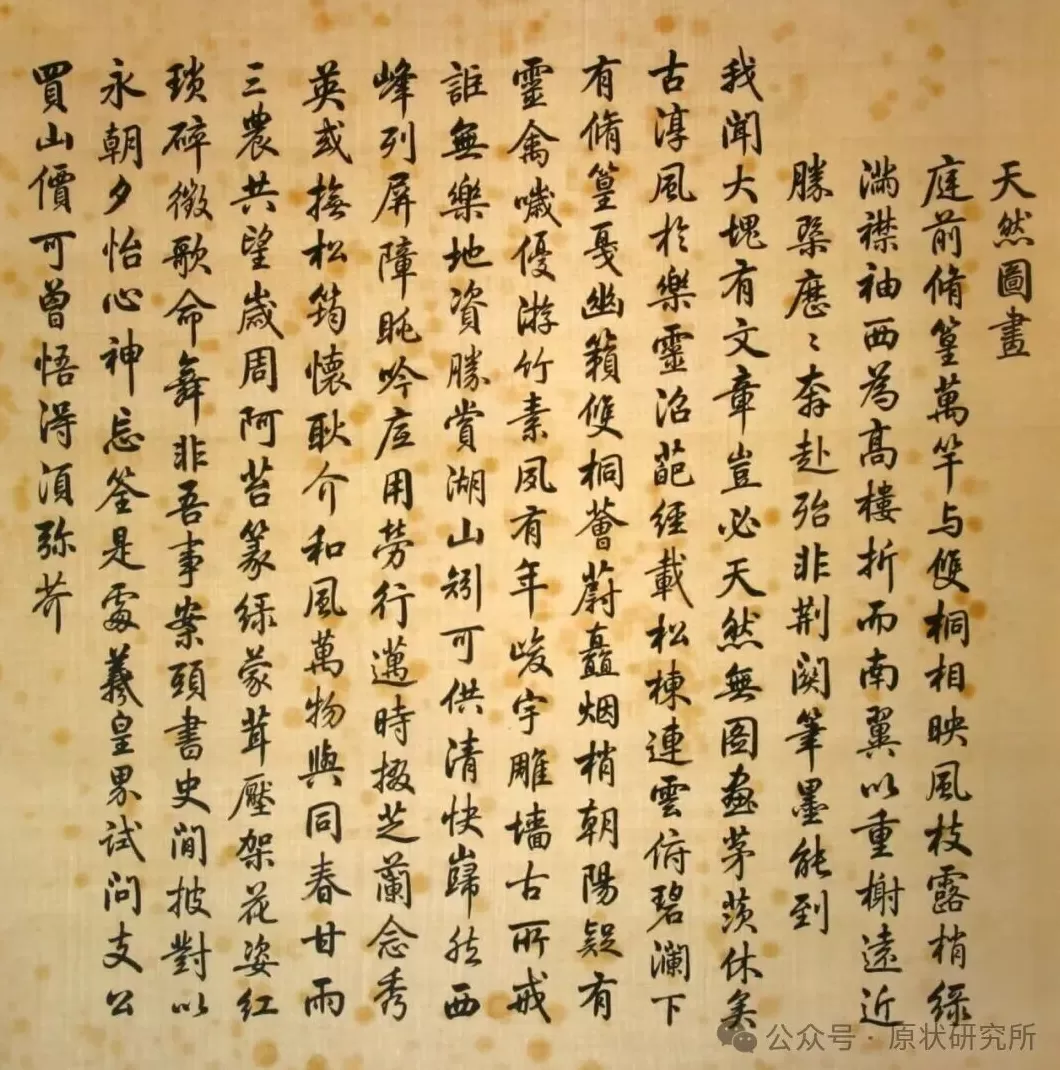 天然圖畫
庭前脩篁萬竿与雙桐相映風枝露梢綠
滿襟袖西為高樓折而南翼以重榭遠近
勝槩歷〻奔赴殆非荆関筆墨能到
我聞大塊有文章豈必天然無图畫茅茨休矣
古淳風於樂靈沼葩經載松棟連雲俯碧瀾下
有脩篁戛幽籟雙桐薈蔚矗烟梢朝陽疑有
靈禽噦優游竹素夙有年峻宇雕墻古所戒
詎無樂地資勝賞湖山矧可供清快歸然西
峰列屏障眺吟底用勞行邁時掇芝蘭念秀
英或撫松筠懷耿介和風萬物與同春甘雨
三農共望歲周阿苔篆綠蒙茸壓架花姿紅
瑣碎徵歌命舞非吾事案頭書史閒披對以
永朝夕怡心神忘筌是處羲皇界試問支公
買山價可曾悟得須弥芥
公众号·原状研究所